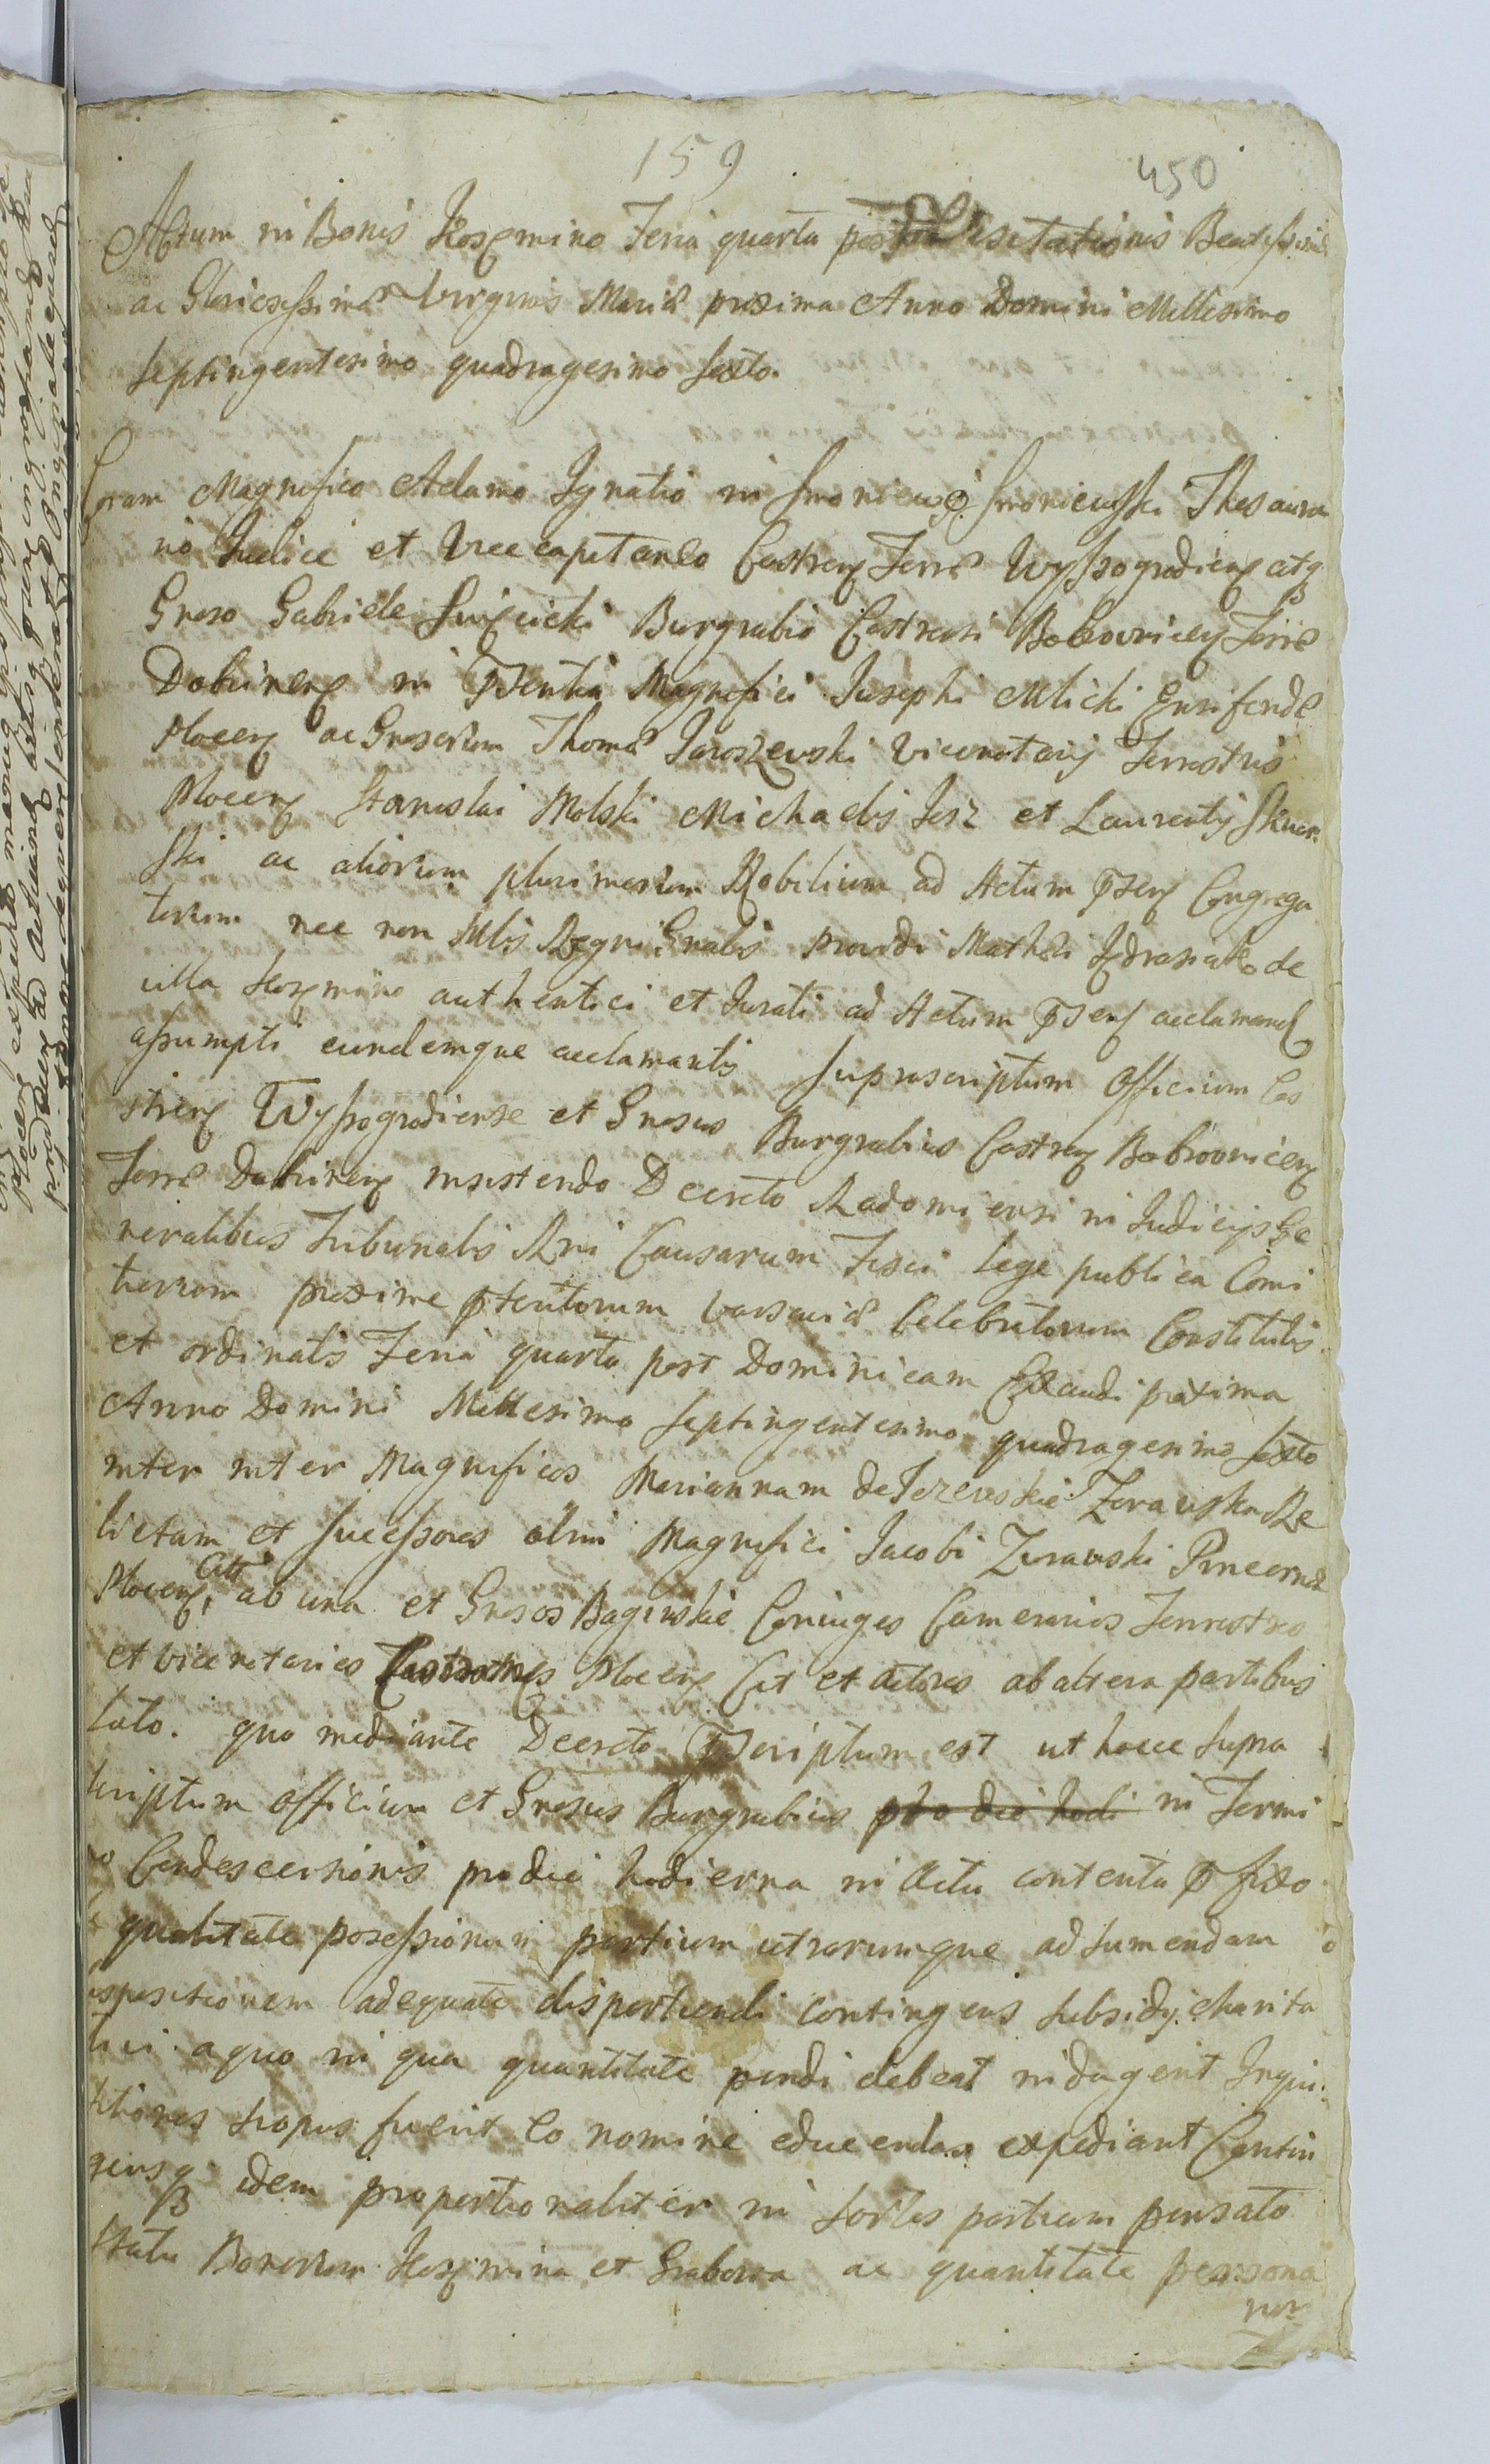 159
450
Actum in Bonis Kosemino Feria quarta post Visitationis Beatissimæ
ac Gloriosissimæ Virginis Mariæ proxima Anno Domini Millesimo
septingentesimo quadragesimo sexto.
Coram Magnifico Adamo Ignatio in Smoniewo Smoniewski Thesaura
rio Iudice et Vicecapitaneo Castren Terræ Wyssogradien atq
Groso Gabriele Święcicki Burgrabio Castrensi Bobrovnicen Terræ
Dobrinen in Pntia Magnifici Iosephi Mlicki Ensiferi
Plocen ac Grosorum Thomæ Jaroszewski Vicenotarij Terrestris
Plocen Stanislai Molski Michaelis Jeż et Laurentij Skwar
ski ac aliorum plurimorum Nobilium ad Actum psen Congrega
torum nec non Mlis Regni Gnalis providi Mathei Jędrasiak de
villa Kosemino authentici et Iurati ad Actum psen acclamand
assumpti eundemque acclamantis suprascriptum Officium Cas
stren Wyssogradiense et Grosus Burgrabius Castren Bobrovnicen
Terræ Dobrinen insistendo Decreto Radomiensi in Iudicijs Ge
neralibus Tribunalis Rni Causarum Fisci lege publica Comi
tiorum proxime pteritorum Varsaviæ Celebratorum Constitutis
et ordinatis Feria quarta post Dominicam Exaudi proxima
Anno Domini Millesimo septingentesimo quadragesimo sexto
inter inter Magnificos Mariannam de Jezewskie Zurawska Re
lictam et successores olim Magnifici Iacobi Zurawski Pincernæ
Plocen, Citt ab una et Grosos Bagieńskie Coniuges Camerarios Terrestres
et vicenotarios Castrenses Plocen Cit et actores ab altera partibus
lato. quo mediante Decreto pscriptum est ut hocce supra
scriptum officium et Grosus Burgrabius pro die hodi in Termi
no Condescensionis pro die hodierna in Actu contenta pfixo
qualitate possessionum partium utrarumque ad sumendam
ispositionem adequate dispartiendi contingens subsidij charita
tivi a quo in qua quantitate pendi debeat indagent Inqui
sitiones si opus fuerit Eo nomine educendas expediant Contin
gensq idem proportionaliter in sortes partium pensato
statu Bonorum Kosemina et Grabowa ac quantitate persona
rum